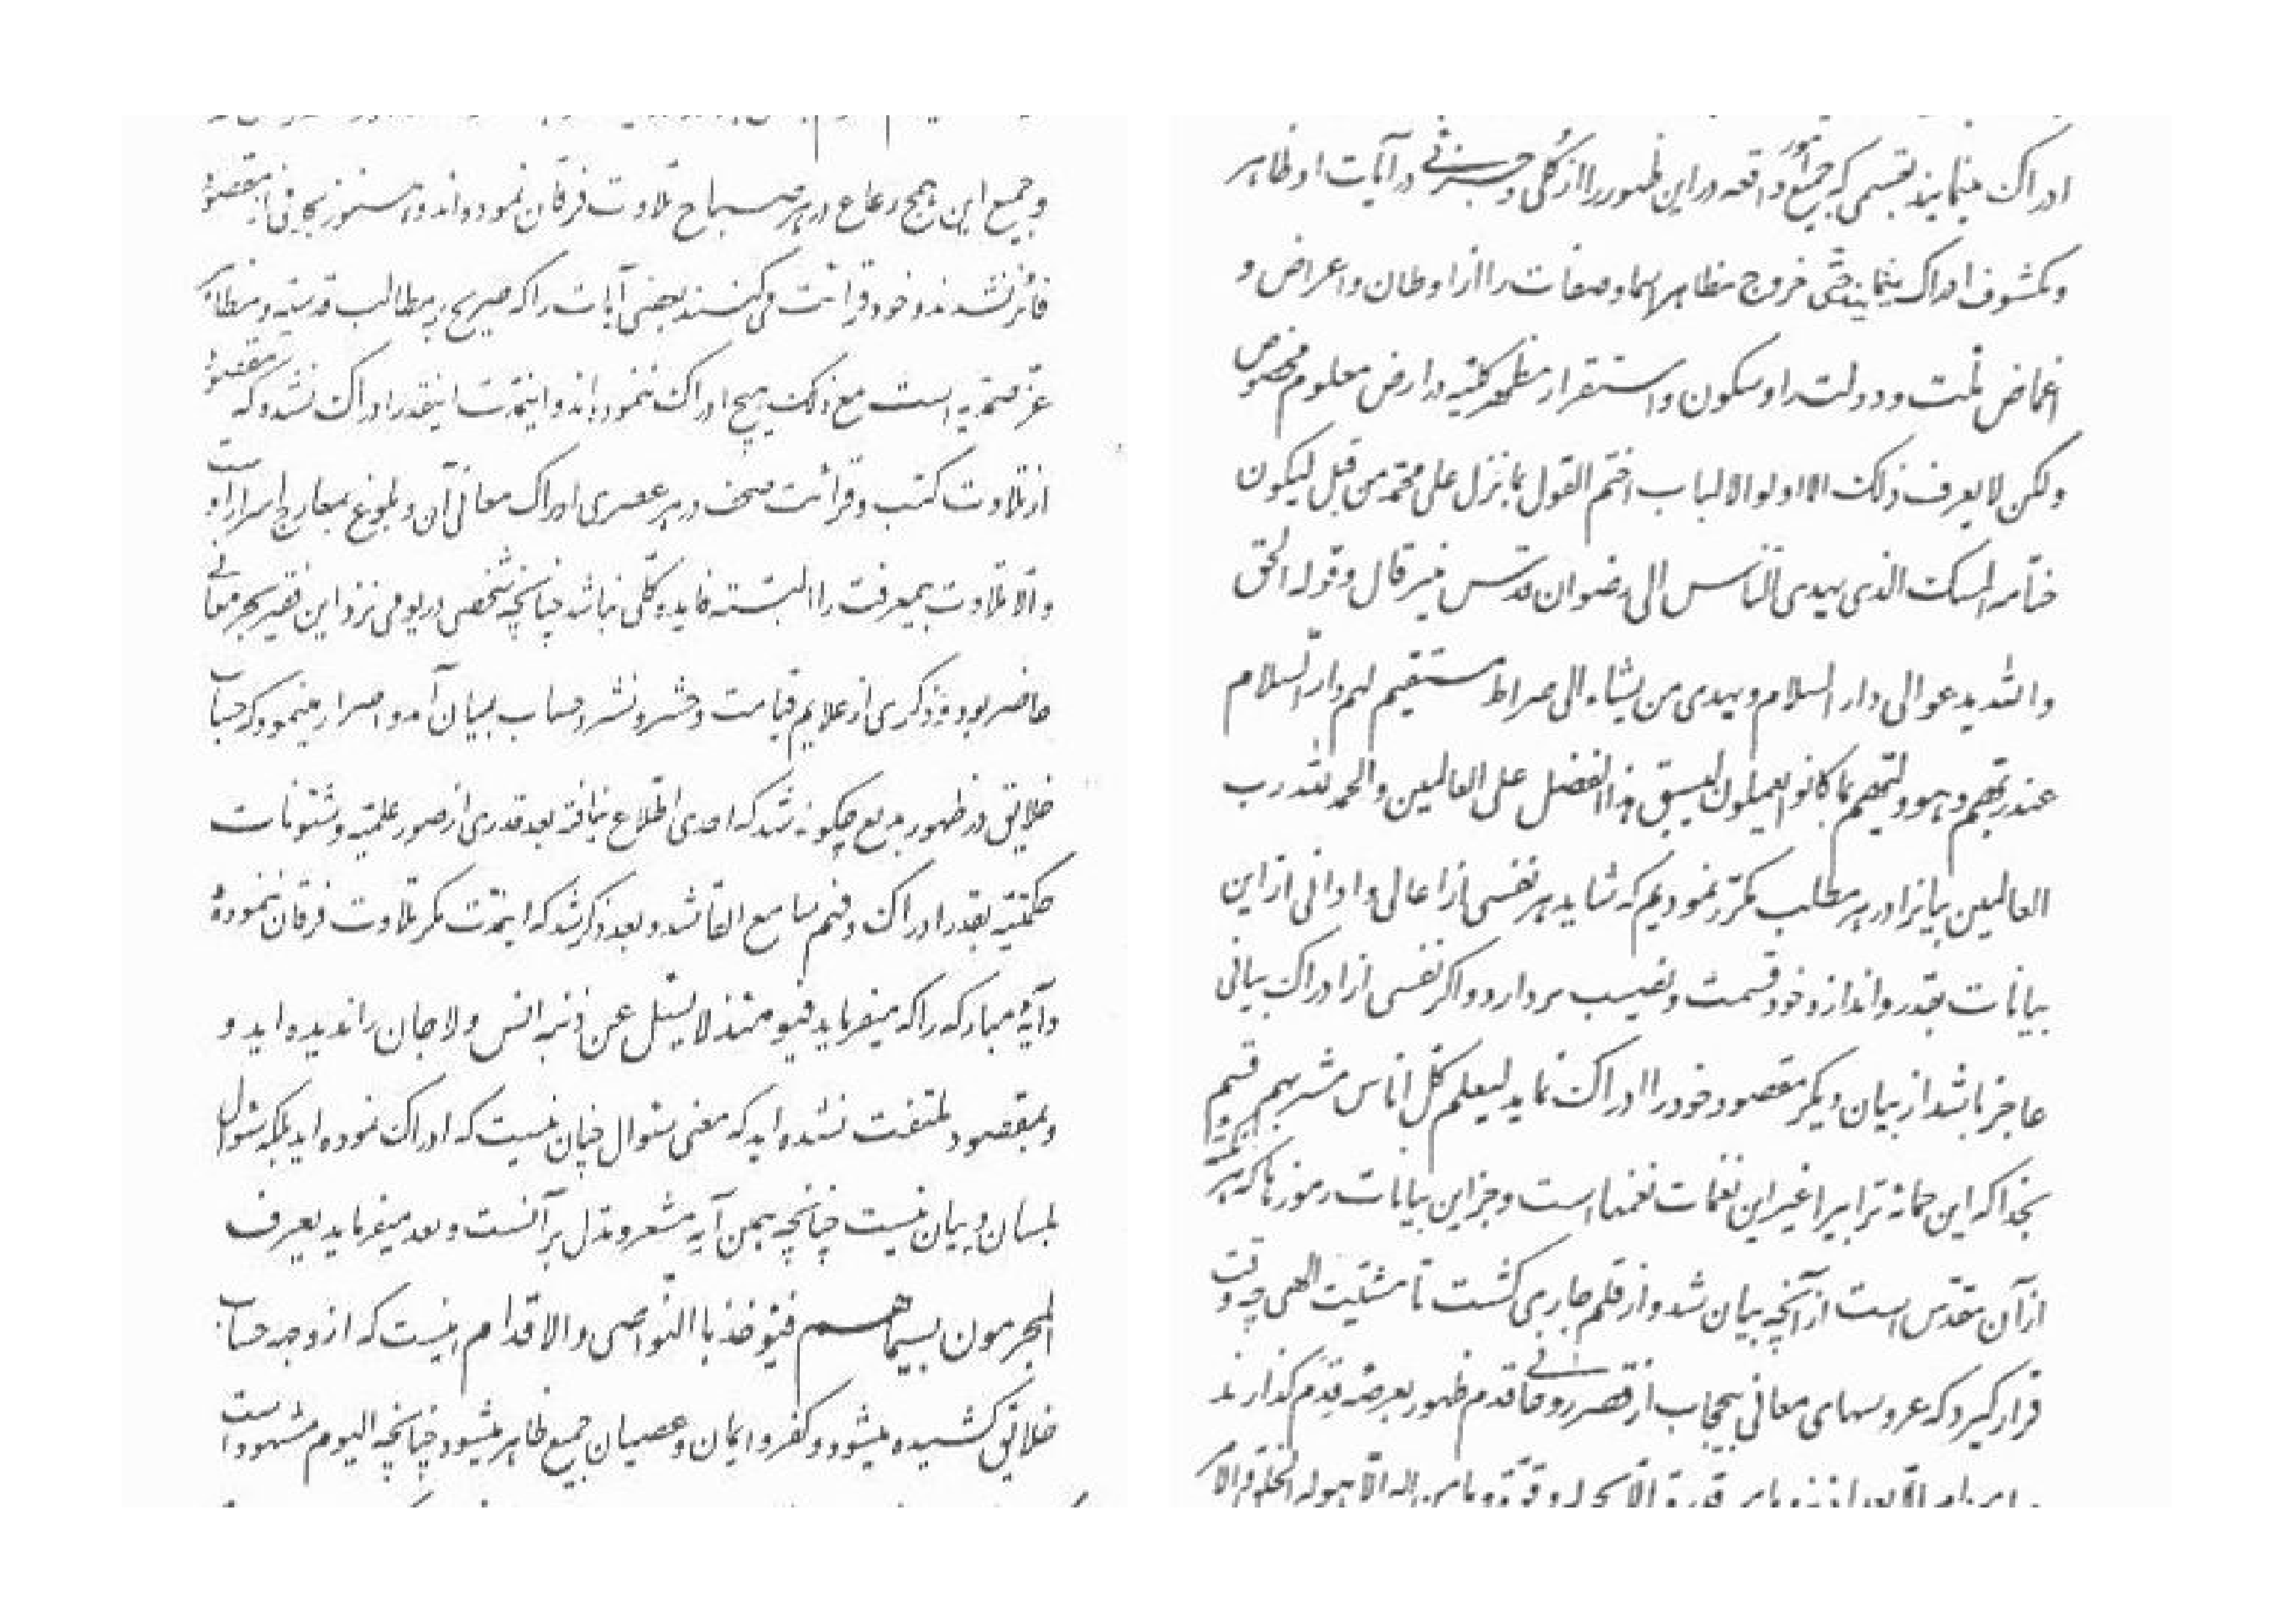 ادراک مینمایند بقسمی که جمیع امور واقعه در این ظهور را از کلی و جزئی در آیات او ظاهر
و مکشوف ادراک مینمایند حتی خروج مظاهر اسما و صفات را از اوطان و اعراض و
اغماض ملت و دولت را و سکون و استقرار مظهر کلیه در ارض معلوم مخصوص
ولکن لا یعرف ذلک الا اولوا الالباب اختم القول بما نزل علی محمد من قبل لیکون
ختامه المسک الذی یهدی الناس الی رضوان قدس منیر قال و قوله الحق
والله یدعو الی دار السلام و یهدی من یشاء الی صراط مستقیم لهم دار السلام
عند ربهم و هو ولیهم بما کانوا یعملون لیسبق هذا الفضل علی العالمین والحمد لله رب
العالمین بیانرا در هر مطلب مکرر نمودیم که شاید هر نفسی از اعالی و ادانی از این
بیانات بقدر و اندازه خود قسمت و نصیب بردارد و اگر نفسی از ادراک بیانی
عاجز باشد از بیان دیگر مقصود خود را ادراک نماید لیعلم کل اناس مشربهم قسم
بخدا که این حمامه ترابیرا غیر این نغمات نغمها است و جز این بیانات رموزها که هر نکته
از آن مقدس است از آنچه بیان شد و از قلم جاری گشت تا مشیت الهی چه وقت
قرار گیرد که عروسهای معانی بیحجاب از قصر روحانی قدم ظهور بعرصه قدم گذارند
و جمیع این همج رعاع در هر صباح تلاوت فرقان نموده‌اند و هنوز بحرفی از مقصود
فائز نشدند و خود قرائت می کنند بعضی آیات را که صریح بر مطالب قدسیه و مظاهر
عز صمدیه است مع ذلک هیچ ادراک ننموده‌اند و اینمدت اینقدر ادراک نشد که مقصود
از تلاوت کتب و قرائت صحف در هر عصری ادراک معانی آن و بلوغ بمعارج اسرار او است
والا تلاوت بیمعرفت را البته فایده کلی نباشد چنانچه شخصی در یومی نزد این فقیر بحر معانی
حاضر بود و ذکری از علایم قیامت و حشر و نشر و حساب ببیان آمد و اصرار مینمود که حساب
خلایق در ظهور بدیع چگونه شد که احدی اطلاع نیافته بعد قدری از صور علمیه و شئونات
حکمتیه بقدر ادراک و فهم سامع القا شد و بعد ذکر شد که اینمدت مگر تلاوت فرقان ننموده
و آیه مبارکه را که میفرماید فیومئذ لا یسئل عن ذنبه انس ولا جان را ندیده‌اید و
بمقصود ملتفت نشده‌اید که معنی سئوال چنان نیست که ادراک نموده‌اید بلکه سئوال
بلسان و بیان نیست چنانچه همین آیه مشعر و مدل بر آنست و بعد میفرماید یعرف
المجرمون بسیماهم فیؤخذ با النواصی والاقدام اینست که از وجه حساب
خلایق کشیده میشود و کفر و ایمان و عصیان جمیع ظاهر میشود چنانچه الیوم مشهود است